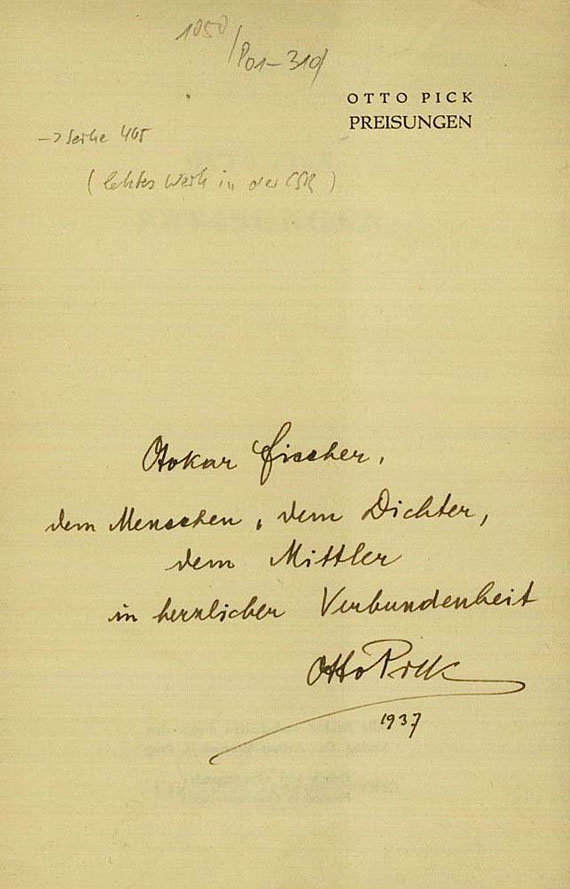 1050/P01-310
OTTO PICK
PREISUNGEN
-> Seite 465
(letztes Werk in der CSR)
Otokar Fischer,
dem Menschen, dem Dichter,
dem Mittler
in herzlicher Verbundenheit
Otto Pick
1937